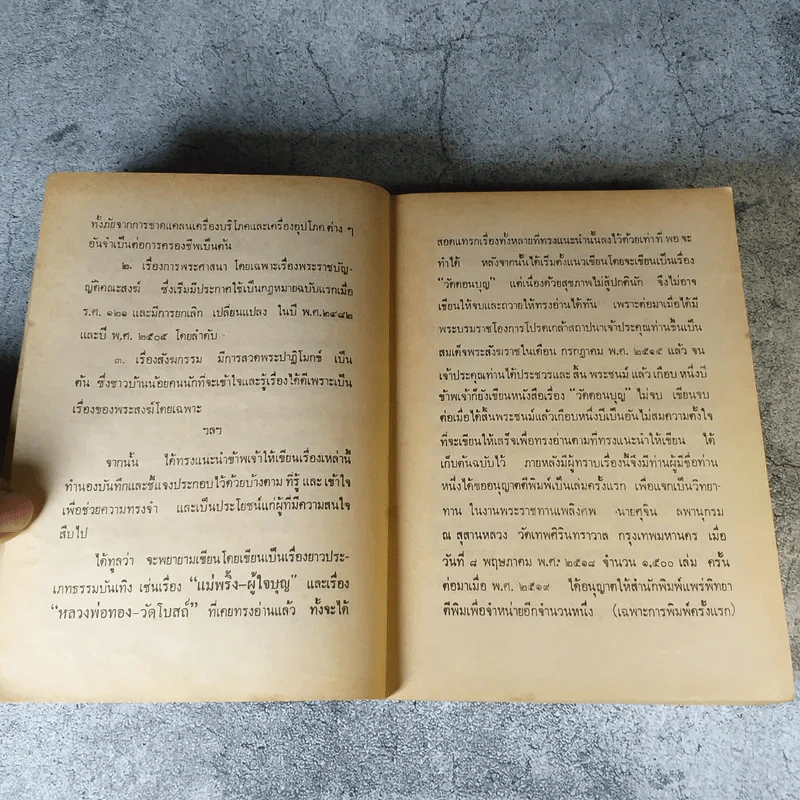 ทั้งภัยจากการขาดแคลนเครื่องบริโภคและเครื่องอุปโภค ต่าง ๆ
อันจำเป็นต่อการครองชีพเป็นต้น
๒. เรื่องการพระศาสนา โดยเฉพาะเรื่องพระราชบัญ-
ญัติคณะสงฆ์ ซึ่งเริ่มมีประกาศใช้เป็นกฎหมายฉบับแรกเมื่อ
ร.ศ. ๑๒๑ และมีการยกเลิก เปลี่ยนแปลง ในปี พ.ศ.๒๔๘๒
และปี พ.ศ. ๒๕๐๕ โดยลำดับ
๓. เรื่องสังฆกรรม มีการสวดพระปาฏิโมกข์ เป็น
ต้น ซึ่งชาวบ้านน้อยคนนักที่จะเข้าใจและรู้เรื่องได้ดีเพราะเป็น
เรื่องของพระสงฆ์โดยเฉพาะ
ฯลฯ
จากนั้น ได้ทรงแนะนำข้าพเจ้าให้เขียนเรื่องเหล่านี้
ทำนองบันทึกและชี้แจงประกอบไว้ด้วยบ้างตาม ที่รู้ และ เข้าใจ
เพื่อช่วยความทรงจำ และเป็นประโยชน์แก่ผู้ที่มีความสนใจ
สืบไป
ได้ทูลว่า จะพยายามเขียนโดยเขียนเป็นเรื่องยาวประ-
เภทธรรมบันเทิง เช่นเรื่อง “แม่พริ้ง-ผู้ใจบุญ” และเรื่อง
“หลวงพ่อทอง-วัดโบสถ์” ที่เคยทรงอ่านแล้ว ทั้งจะได้
สอดแทรกเรื่องทั้งหลายที่ทรงแนะนำนั้นลงไว้ด้วยเท่า ที่ พอ จะ
ทำได้ หลังจากนั้นได้เริ่มตั้งแนวเขียนโดยจะเขียนเป็นเรื่อง
“วัดดอนบุญ” แต่เนื่องด้วยสุขภาพไม่สู้ปกตินัก จึงไม่อาจ
เขียนให้จบและถวายให้ทรงอ่านได้ทัน เพราะต่อมาเมื่อได้มี
พระบรมราชโองการโปรดเกล้าสถาปนาเจ้าประคุณท่านขึ้นเป็น
สมเด็จพระสังฆราชในเดือน กรกฎาคม พ.ศ. ๒๕๑๕ แล้ว จน
เจ้าประคุณท่านได้ประชวรและ สิ้น พระชนม์ แล้ว เกือบ หนึ่งปี
ข้าพเจ้าก็ยังเขียนหนังสือเรื่อง “วัดดอนบุญ” ไม่จบ เขียนจบ
ต่อเมื่อได้สิ้นพระชนม์แล้วเกือบหนึ่งปีเป็นอันไม่สมความตั้งใจ
ที่จะเขียนให้เสร็จเพื่อทรงอ่านตามที่ทรงแนะนำให้เขียน ได้
เก็บต้นฉบับไว้ ภายหลังมีผู้ทราบเรื่องนี้จึงมีท่านผู้มีชื่อท่าน
หนึ่งได้ขออนุญาตตีพิมพ์เป็นเล่มครั้งแรก เพื่อแจกเป็นวิทยา-
ทาน ในงานพระราชทานเพลิงศพ นายศุจิน ลพานุกรม
ณ สุสานหลวง วัดเทพศิรินทราวาส กรุงเทพมหานคร เมื่อ
วันที่ ๘ พฤษภาคม พ.ศ. ๒๕๑๘ จำนวน ๑,๕๐๐ เล่ม ครั้น
ต่อมาเมื่อ พ.ศ. ๒๕๑๙ ได้อนุญาตให้สำนักพิมพ์แพร่พิทยา
ตีพิมพ์เพื่อจำหน่ายอีกจำนวนหนึ่ง (เฉพาะการพิมพ์ครั้งแรก)